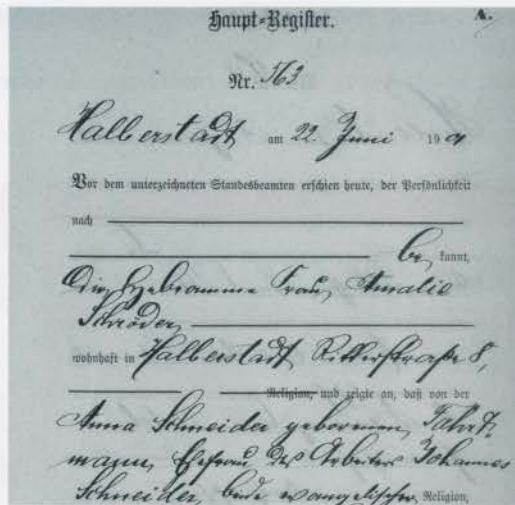 Haupt-Register.
A.
Nr. 563
Halberstadt am 22. Juni 19 01
Vor dem unterzeichneten Standesbeamten erschien heute, der Persönlichkeit
nach
be kannt,
die Hebamme Frau Amalie
Schröder,
wohnhaft in Halberstadt, Ritterstraße 8,
Religion, und zeigte an, daß von der
Anna Schneider geborenen
mann, Ehefrau des Arbeiters Johannes
Schneider, beide evangelischer Religion,